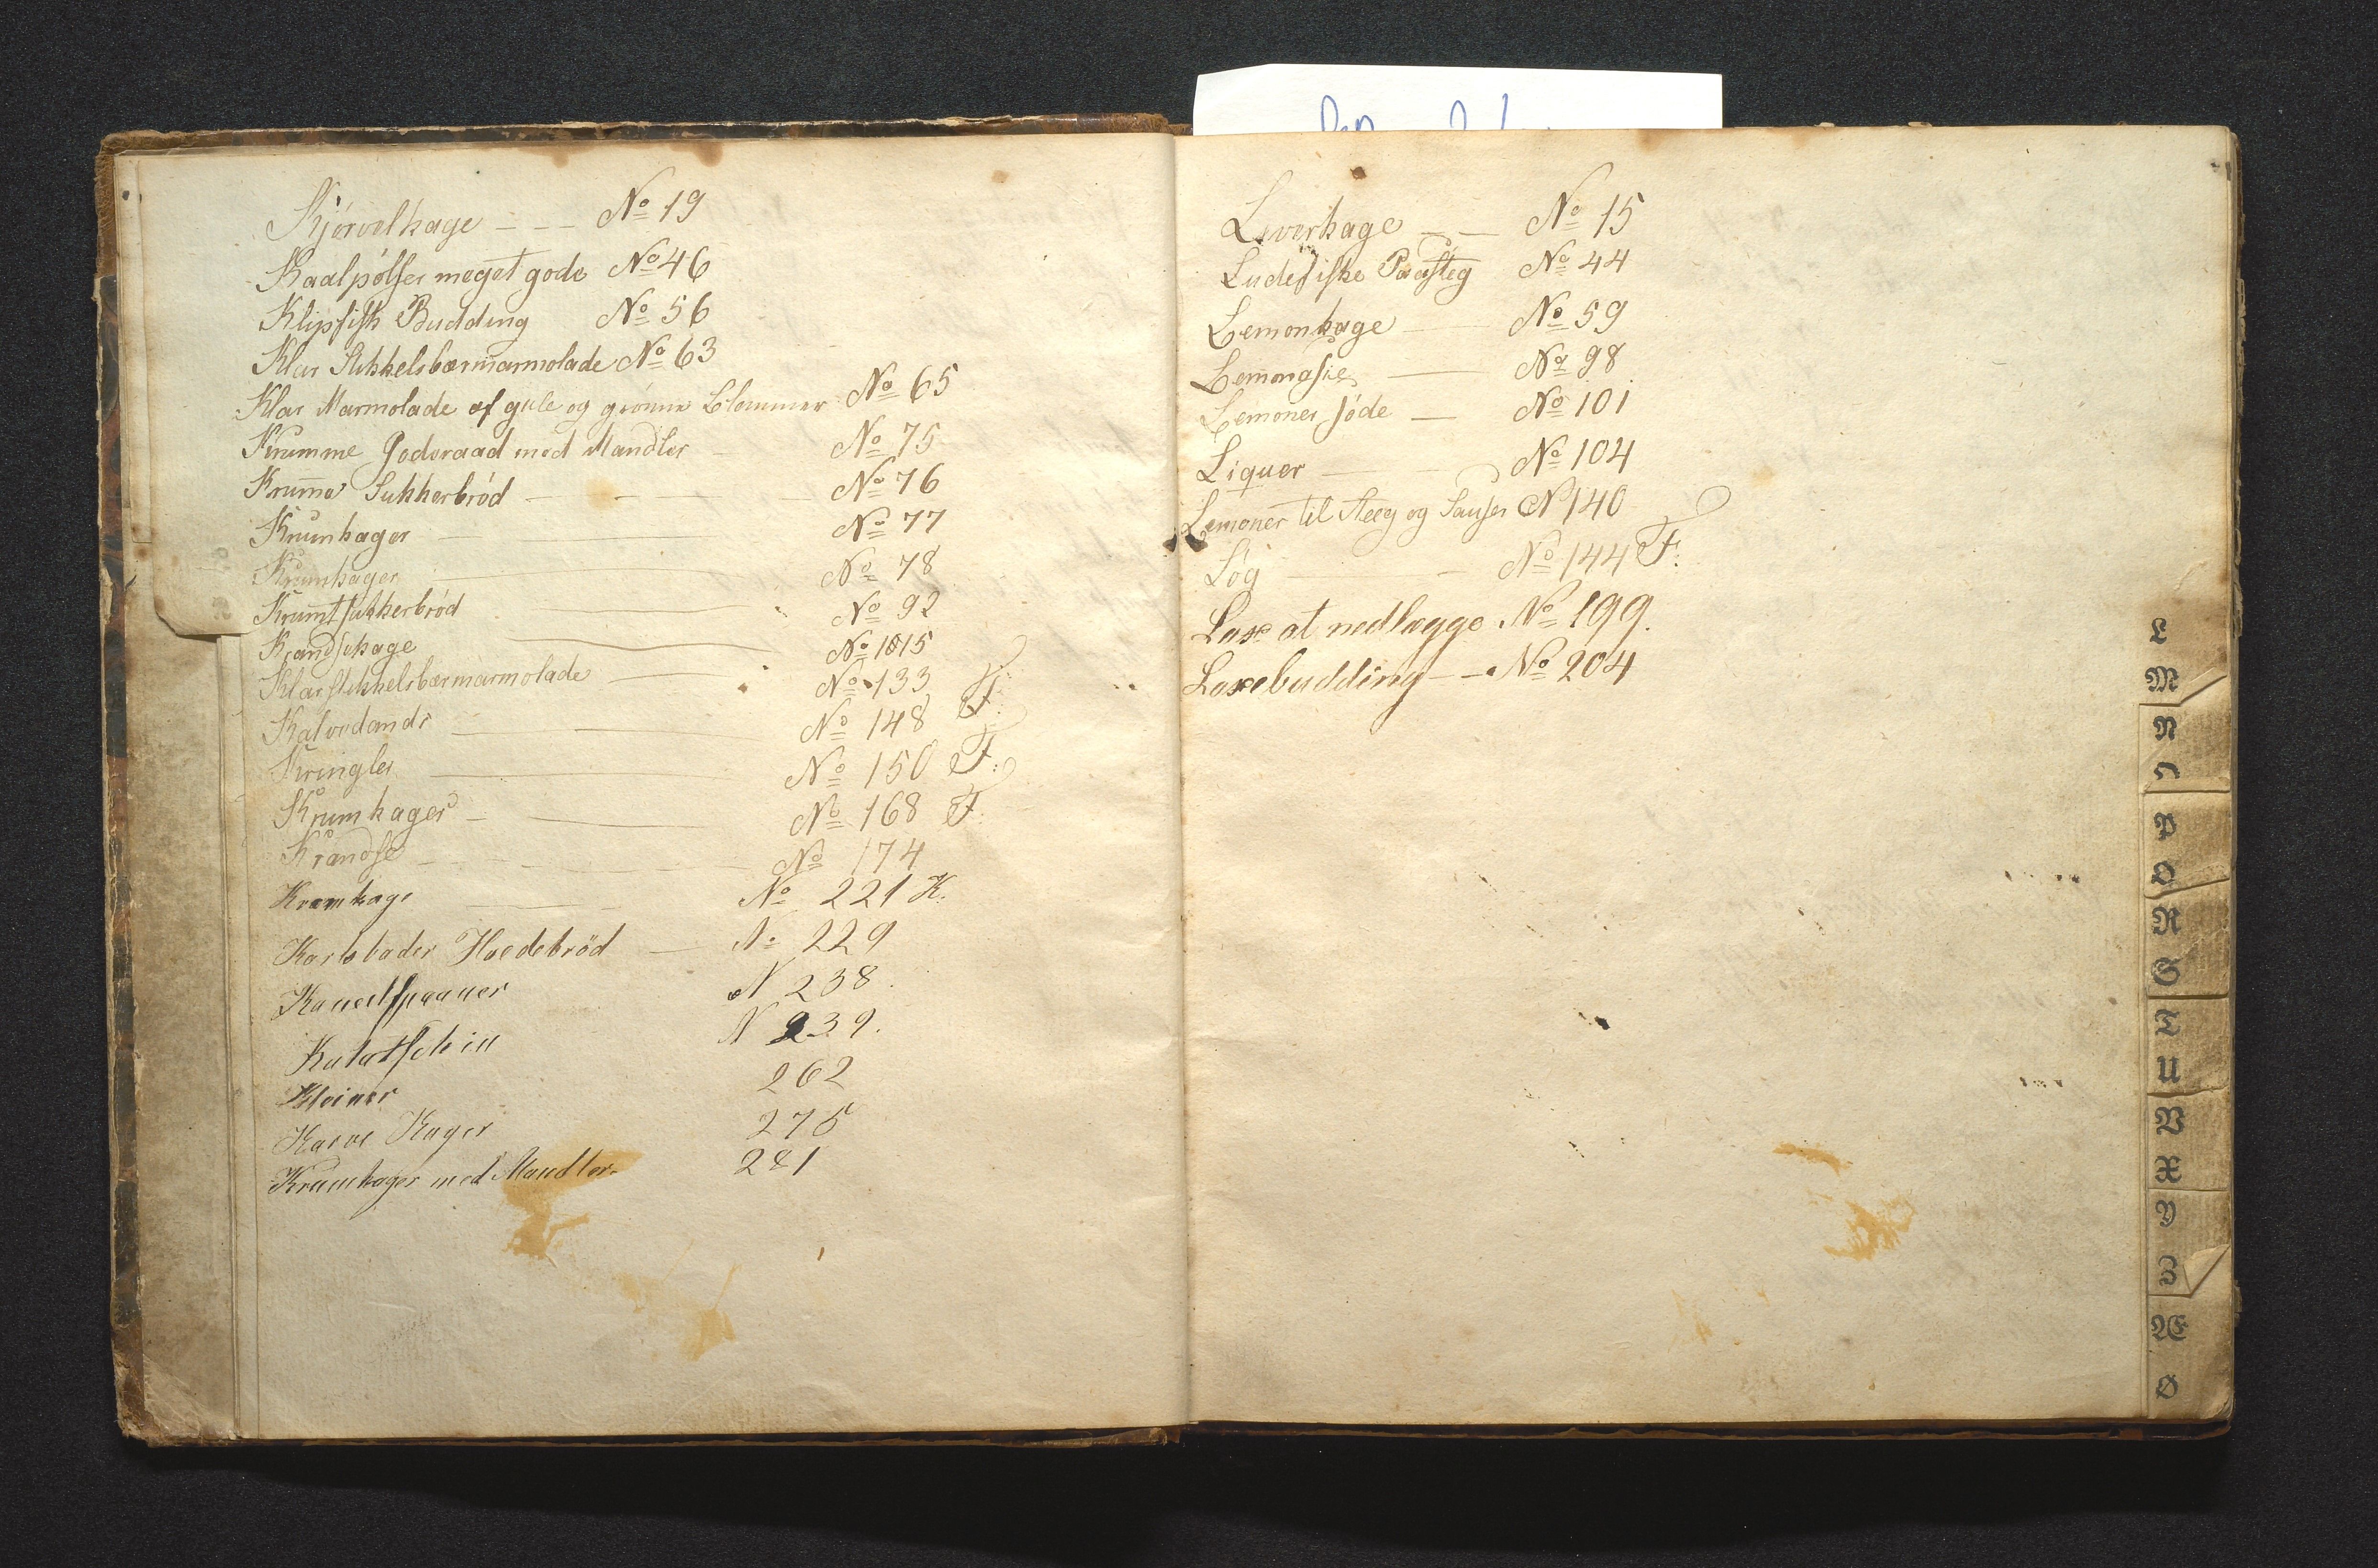 Kjørvelkage - - - No 19
Kaalpølser meget gode No 46
Klipfisk Budding No 56
Klar Stikkelsbærmarmolade No 63
Klar Marmolade af gule og grønne Blommer No 65
Krumme Goderaad med Mandler No 75
Krumme Sukkerbrød - - - No 76
Krumkager No 77
Krumkager No 78
Krumt sukkerbrød No 92
Krandsekage No 1015
Klar stikkelsbærmarmolade No 133
Kalvedands No 148 F:
Kringler No 150 F:
Krumkager No 168 F:
Krandse No 174
Kramkage No 221 K.
Karlsbader Hvedebrød No 229
Kaneelspaaner N 238.
N 239.
Kleiner 262
Karve Kager 275
Krumkager med Mandler 281
Leverkage No 15
Ludefiske Paasteg No 44
Lemonkage No 59
Lemonasie No 98
Lemoner søde No 101
Liquer No 104
Lemoner til Steeg og Sauser N 140
Løg No 144 F:
Lax at nedlægge No 199.
Laxebudding - - No 204
L
M
N
O
P
Q
R
S
T
U
V
X
Y
Z
Æ
Ø